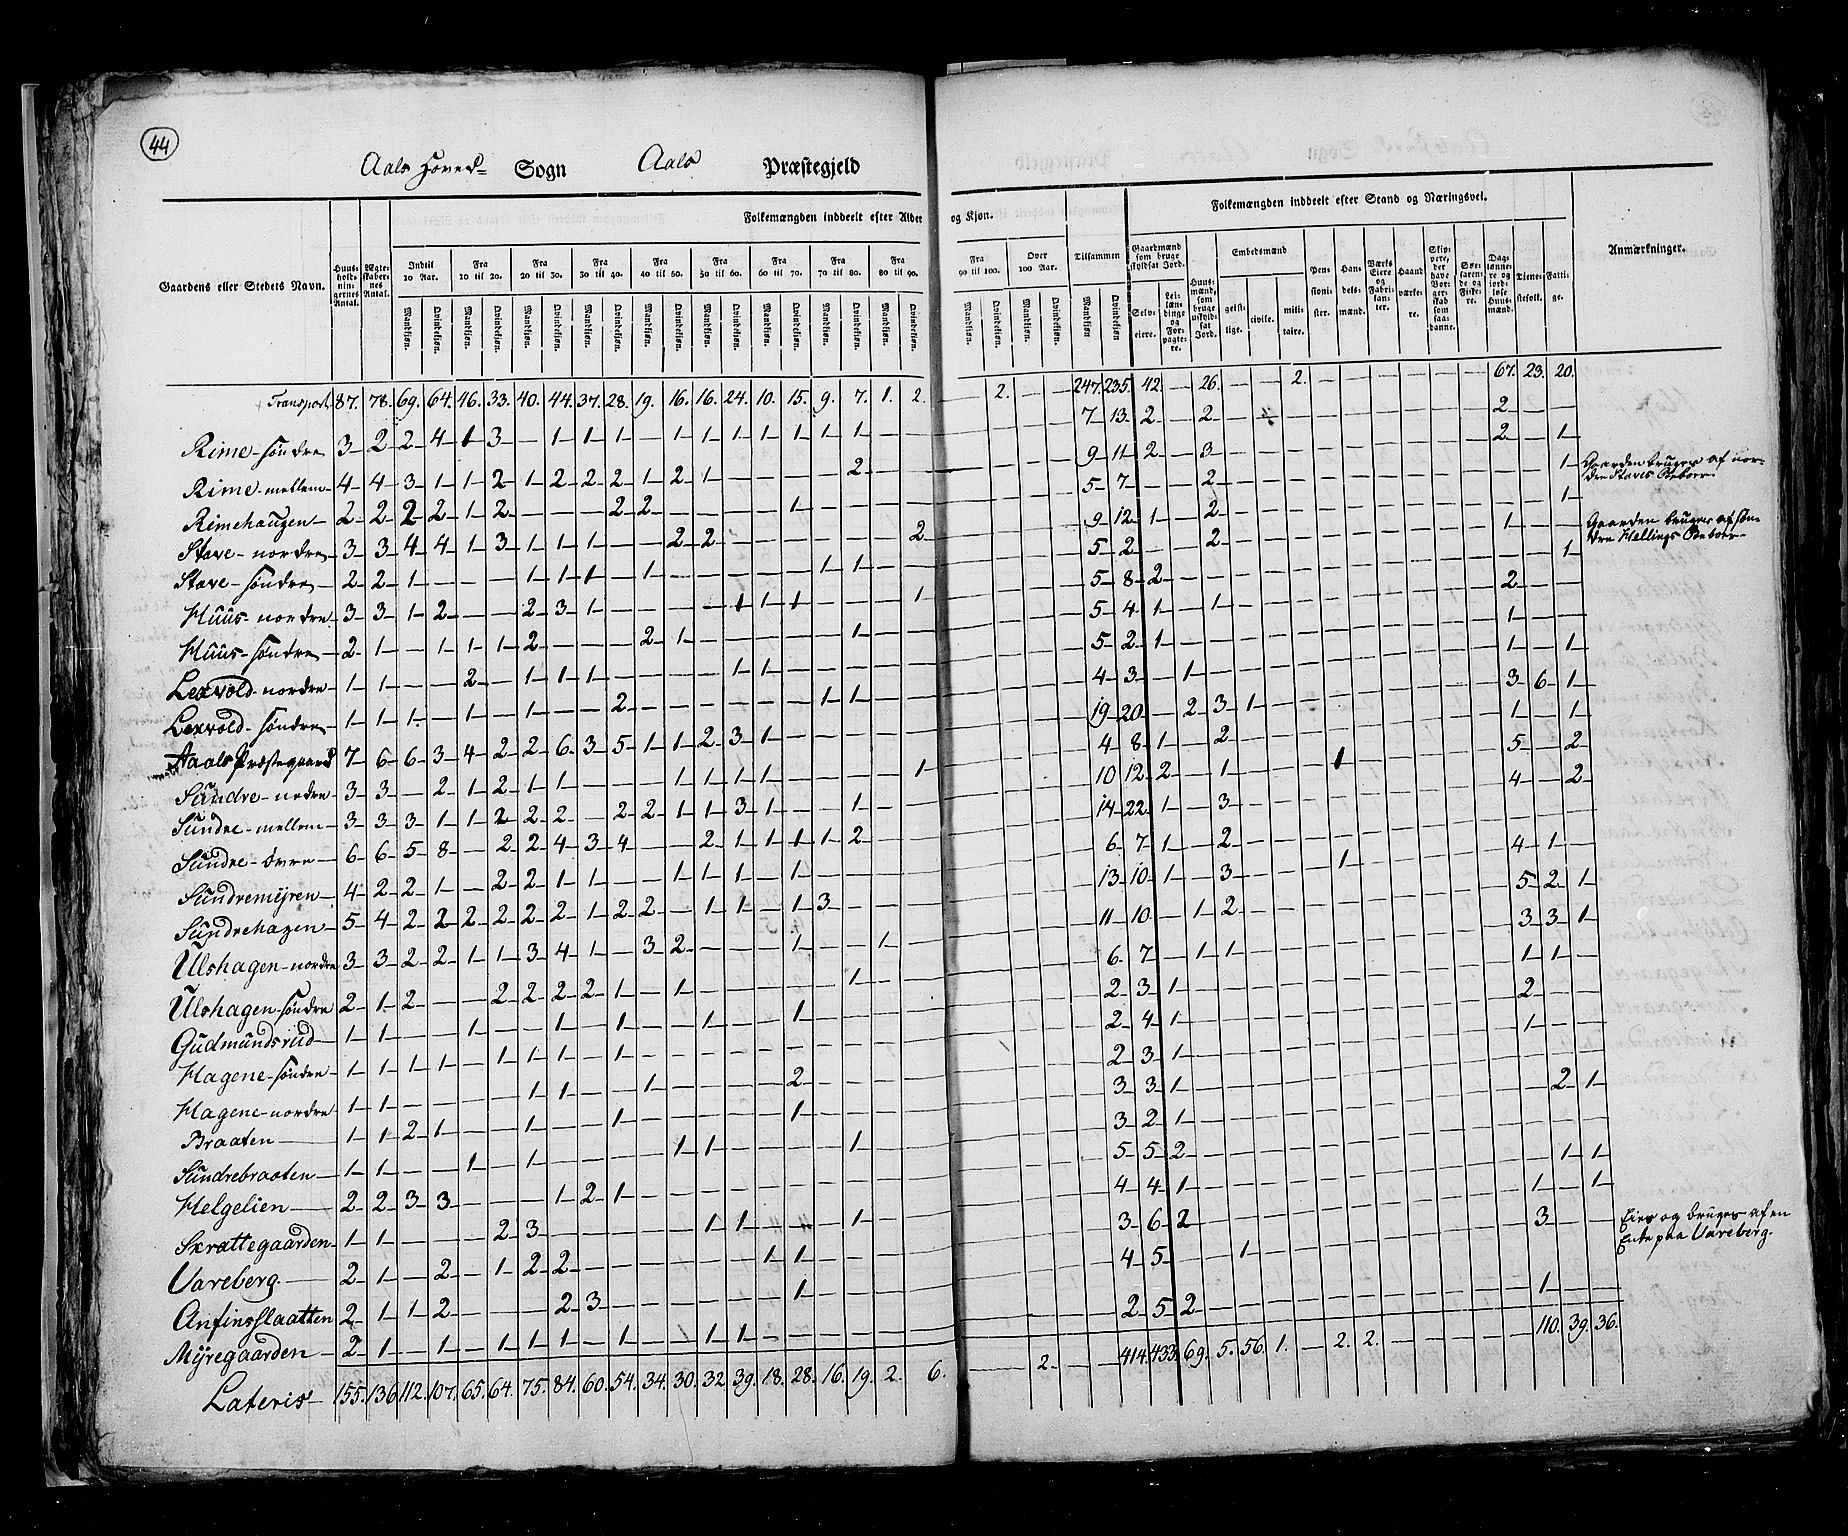 44
Aals Hoved- Sogn Aals Præstegjeld
Gaardens eller Stedets Navn. | Huus-holdnin-gernes Antal. | Ægte-skaber-nes Antal. | Folkemængden inddeelt efter Alder og Kjøn. | Tilsammen | Folkemængden inddeelt efter Stand og Næringsvei. | Anmærkninger.
Indtil 10 Aar. | Fra 10 til 20. | Fra 20 til 30. | Fra 30 til 40. | Fra 40 til 50. | Fra 50 til 60. | Fra 60 til 70. | Fra 70 til 80. | Fra 80 til 90. | Fra 90 til 100. | Over 100 Aar.
Mandkjøn. Qvindekjøn.
Gaardmænd som bruge skyldsat Jord. | Selv-eiere. | Lei-lændinge og For-pagte-re. | Huus-mænd, som bruge uskyldsat Jord. | Embedsmænd | geist-lige. | civile. | mili-taire. | Pen-sioni-ster. | Han-dels-mænd. | Værks Eiere og Fabri-kan-ter. | Haand-værke-re. | Skip-pere, der have Bor-gerskab som saa-danne. | Søe-faren-de og Fiske-re. | Dag-lønne-re og jord-løse Huus-mænd. | Tiene-stefolk. | Fatti-ge.
Transport 87. 78. 69. 64. 46. 33. 40. 44. 37. 28. 19. 16. 16. 24. 10. 15. 9. 7. 1. 2. — 2. — — 247. 235. 42. — 26. — — 2. — — — — — — 67. 23. 20.
Rime-søndre 3 2 2 4 1 3 — 1 1 1 — 1 1 1 1 1 1 1 — — 7 13 2 — 2 2
Rime-mellem 4 4 3 1 1 2 1 2 2 2 1 2 1 — — — — 2 — — 9 11 2 — 3 2 — 1
Rimehaugen 2 2 2 2 1 2 — — — 2 2 — — — — 1 — — — — 5 7 — — 2 1 Gaarden bruges af nor-dre Staves Beboer
Stave-nordre 3 3 4 4 1 3 1 1 1 — — 2 2 — — — — — — 2 9 12 1 — 2 1
Stave-søndre 2 2 1 — — — 1 1 1 — 1 — — — — — 1 1 — — 5 2 — — 2 1 — 1 Gaarden bruges af søn-dre Hellings Beboer
Huus-nordre 3 3 1 2 — — 2 3 1 — — — — 1 1 1 — — — 1 5 8 2 2
Huus-søndre 2 1 — 1 1 1 2 — — — 2 1 — — — — — 1 — — 5 4 1 — 1 1
Lexvold-nordre 1 1 — — 2 — 1 1 1 — — — — 1 1 — — — — — 5 2 1 1 — 1
Lexvold-søndre 1 1 1 — 1 — 1 — — 2 — — — — — — 1 1 — — 4 3 — 1
Aals Præstegaard 7 6 6 3 4 2 2 6 3 5 1 1 2 3 1 — — — — — 19 20 — 2 3 1 3 6 1
Sundre-nedre 3 3 — 2 1 2 1 1 — — — 1 1 1 1 — — — — 1 4 8 1 — 2 1 — 1
Sundre-mellem 3 3 3 1 1 2 2 2 — 2 2 1 1 3 1 — — 1 — — 10 12 2 — 1 1 5 — 2
Sundre-øvre 6 6 5 8 — 2 2 4 3 4 — — 2 1 1 1 1 2 — — 14 22 1 — 3 4 — 2
Sundremyren 4 2 2 1 — 2 2 1 1 — — 1 1 1 — 1 — — — — 6 7 1 — 2 4 1
Sundrehagen 5 4 2 2 2 2 2 2 1 2 2 — 1 1 — 1 3 — — — 13 10 1 — 3 1 5 2 1
Ulshagen-nordre 3 3 2 2 1 1 3 4 1 — 3 2 — — — 1 — — 1 — 11 10 — 1 2 3 3 1
Ulshagen-søndre 2 1 2 — — 2 2 2 2 1 — 1 — — — — — 1 — — 6 7 — 1 1 1 1
Gudmundsrud 1 1 — — 1 — — 1 — 1 — — 1 — — 1 — — — — 2 3 1 2
Hagene-søndre 1 1 1 1 — 1 1 1 — 1 — — — — — — — — — — 2 4 1 1
Hagene-nordre 1 1 — — — — 1 1 — — 1 — — — — 2 — — — — 2 3 1
Braaten 1 1 2 1 — — 1 — — 1 — — — — — 1 — — — — 3 3 1 2 1
Sundrebraaten 1 1 — — 1 — 1 — — — — 1 1 — — — — 1 — — 3 2 1
Helgelien 2 2 3 3 — — — 1 2 1 — — — — — — — — — — 5 5 2 1 1
Skrattegaarden 1 1 — — — 2 3 — — — — — 1 1 — — — 1 — — 4 4 1 1 — 1
Vareberg 2 1 — 2 — 1 2 2 — — — — — — 1 1 — — — — 3 6 2 3
Anfinsslaatten 2 1 1 2 — — — 2 3 — — — — — — 1 — — — — 4 5 — — 1 Eies og bruges af en Enke paa Vareberg.
Myregaarden 2 1 — 1 — 1 1 1 — 1 — — 1 1 — — — — — — 2 5 2 1
Lateris 155. 136 112. 107. 65. 64. 75. 84. 60. 54. 34. 30. 32. 39. 18. 28. 16. 19. 2. 6. — 2. — — 414. 433. 69. 5. 56. 1. — 2. 2. — — — — 110. 39. 36.